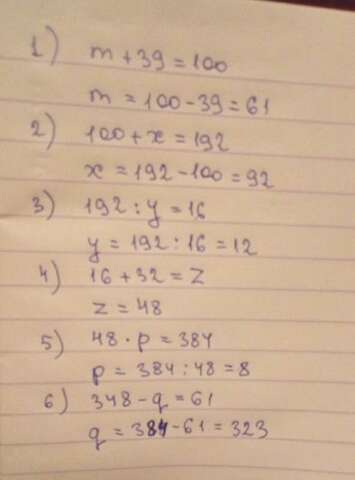 1) m + 39 = 100
m = 100 - 39 = 61
2) 100 + x = 192
x = 192 - 100 = 92
3) 192 : y = 16
y = 192 : 16 = 12
4) 16 + 32 = z
z = 48
5) 48 · p = 384
p = 384 : 48 = 8
6) 348 - q = 61
q = 384 - 61 = 323